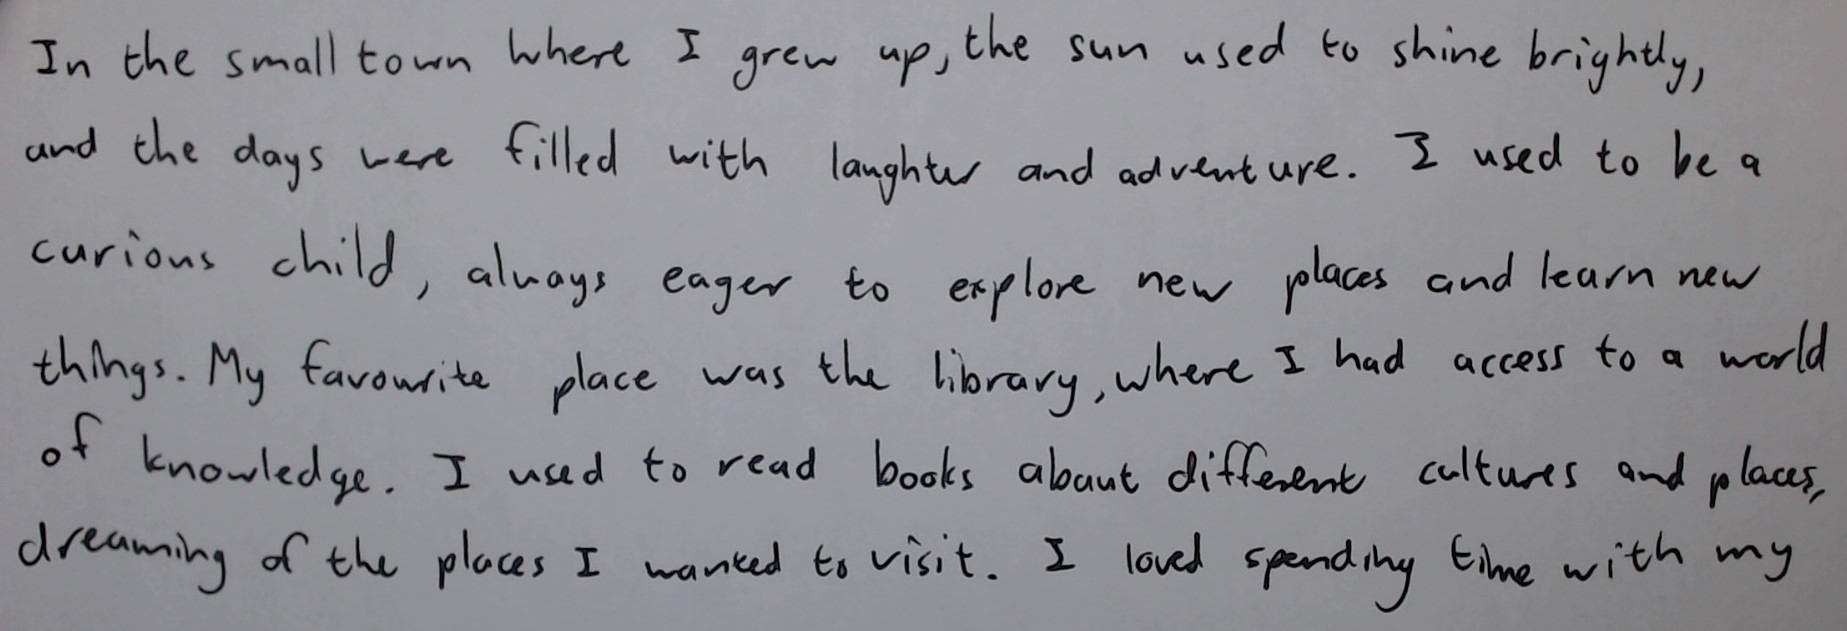 In the small town where I grew up, the sun used to shine brightly,
and the days were filled with laughter and adventure. I used to be a
curious child, always eager to explore new places and learn new
things. My favourite place was the library, where I had access to a world
of knowledge. I used to read books about different cultures and places,
dreaming of the places I wanted to visit. I loved spending time with my